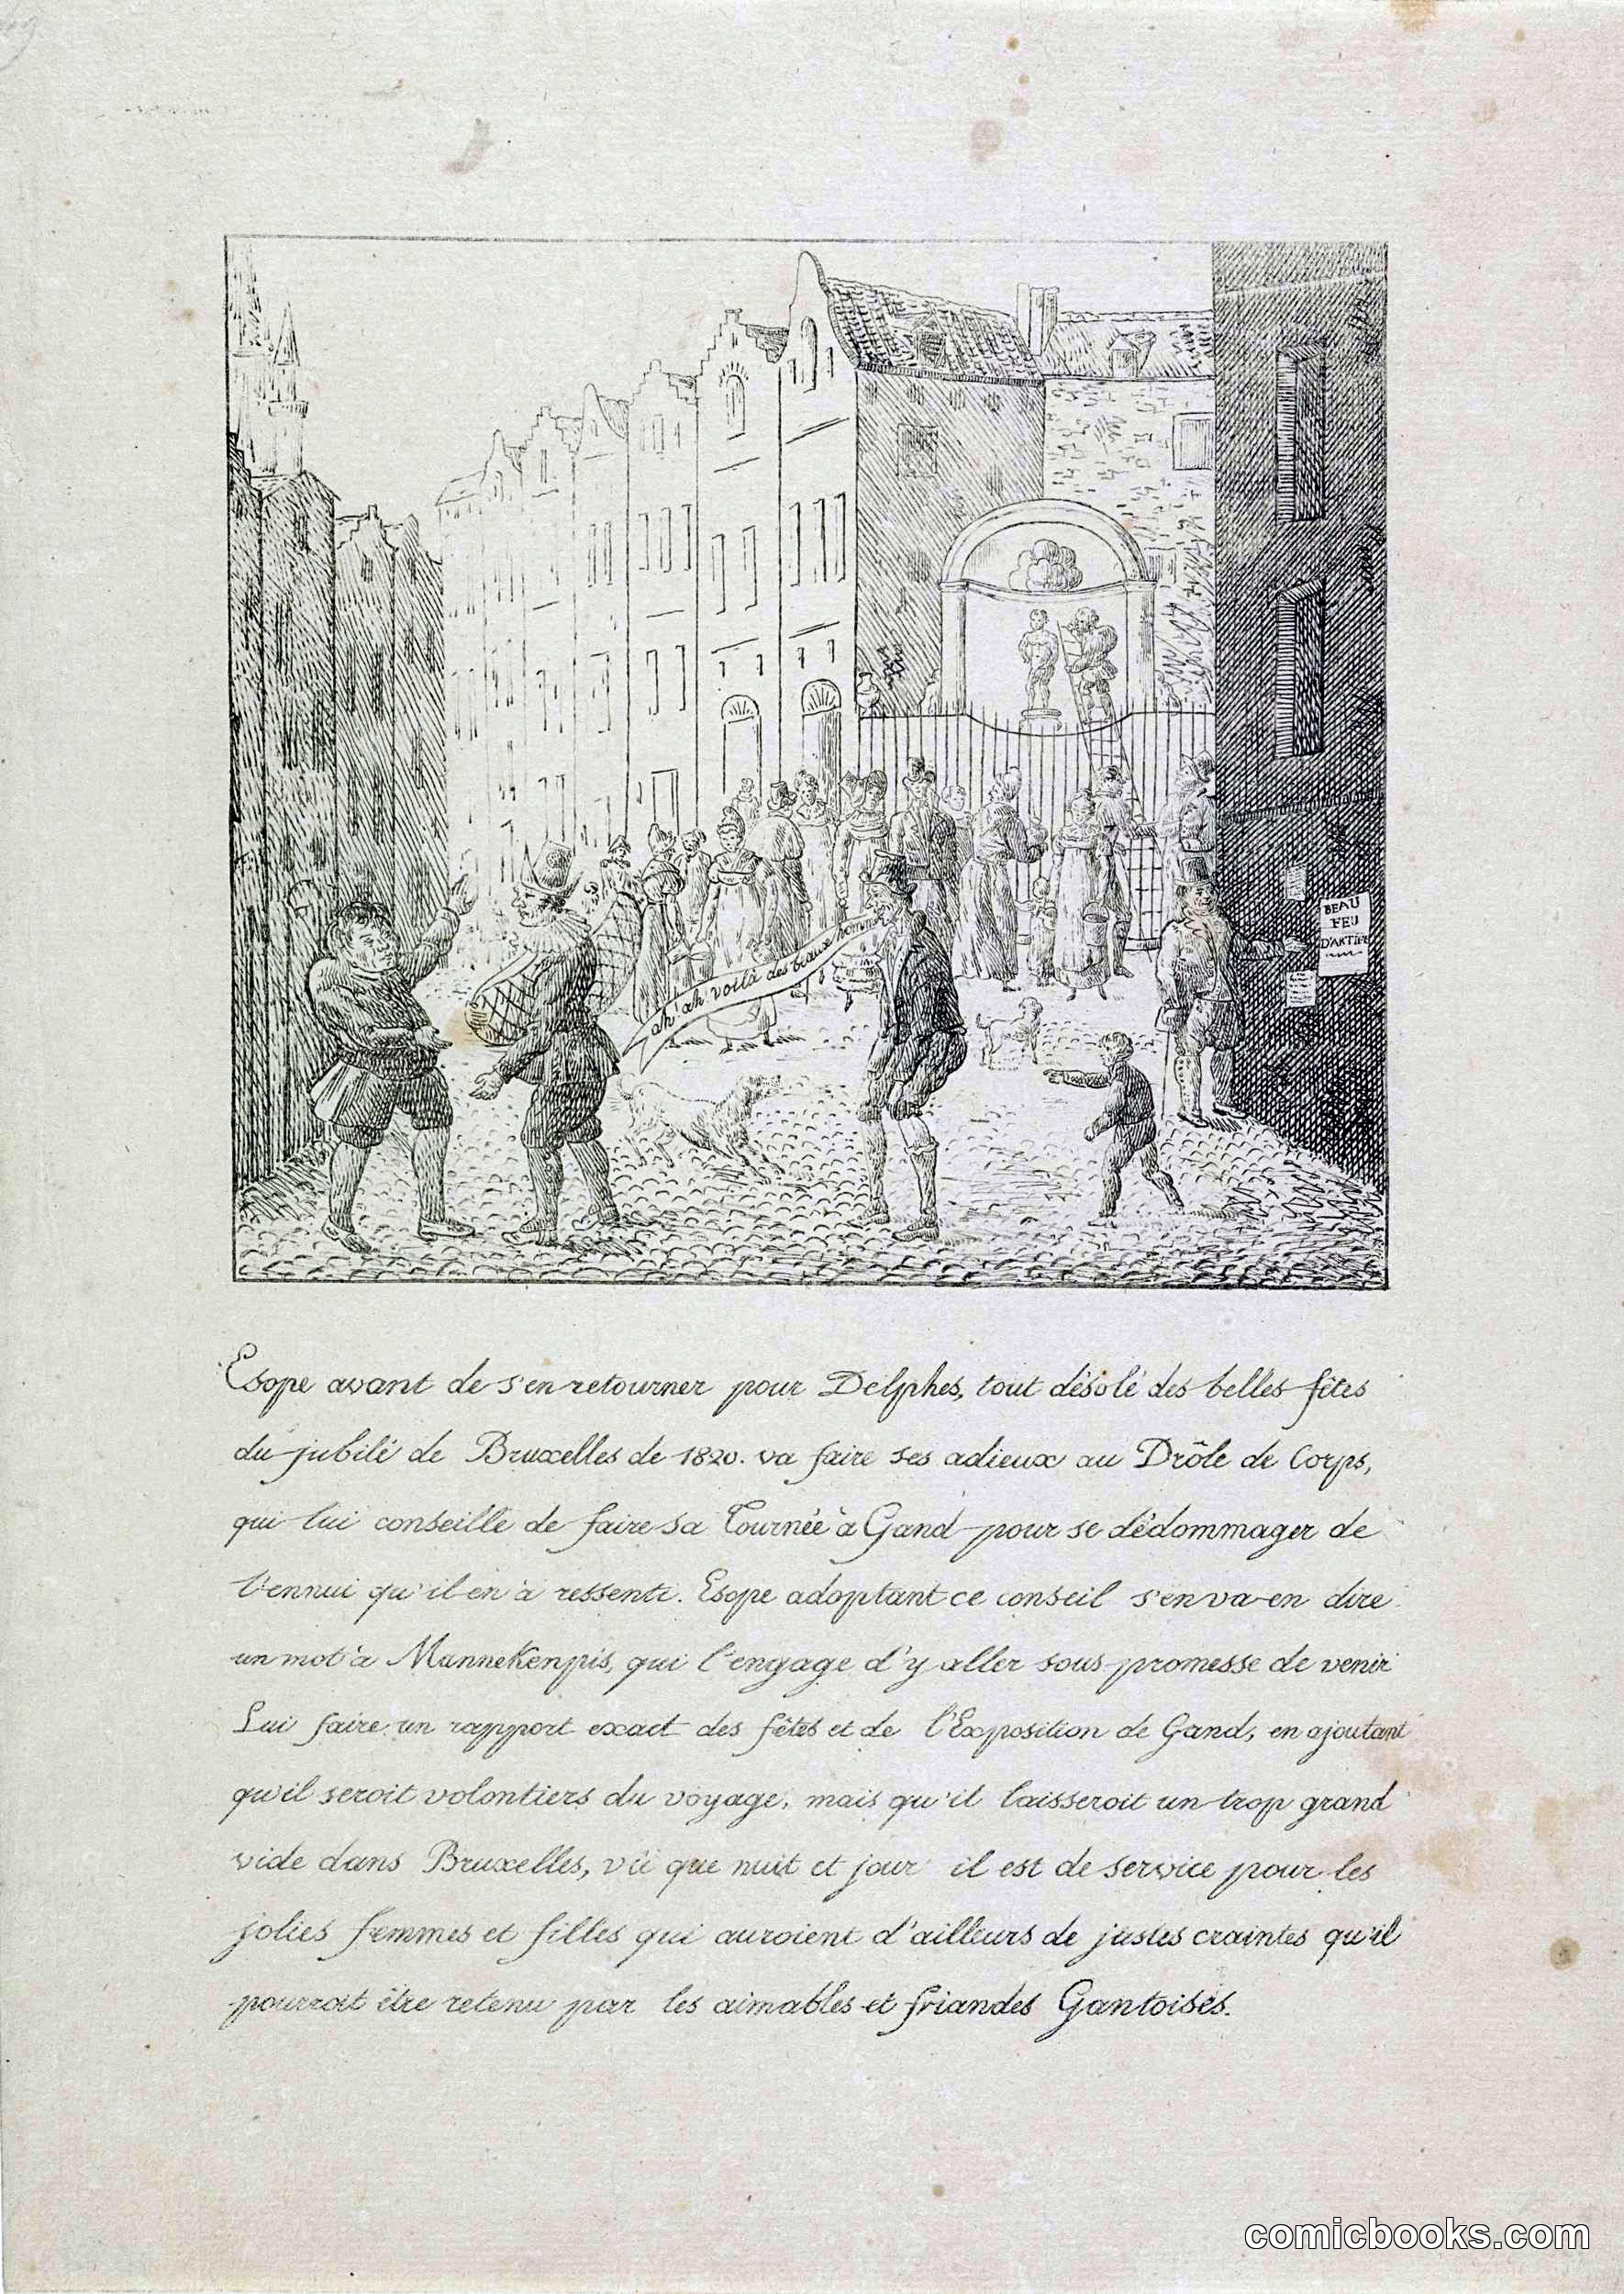 ah! ah! voilà des beaux hommes
BEAU
FEU
D'ARTIFI
Esope avant de s'en retourner pour Delphes, tout désolé des belles fêtes
du jubilé de Bruxelles de 1820. va faire ses adieux au Drôle de Corps,
qui lui conseille de faire sa Tournée à Gand pour se dédommager de
l'ennui qu'il en à ressenti. Esope adoptant ce conseil s'en va en dire
un mot à Mannekenpis, qui l'engage d'y aller sous promesse de venir
Lui faire un rapport exact des fêtes et de l'Exposition de Gand, en ajoutant
qu'il seroit volontiers du voyage, mais qu'il laisseroit un trop grand
vide dans Bruxelles, vû que nuit et jour il est de service pour les
jolies femmes et filles qui auroient d'ailleurs de justes craintes qu'il
pourroit être retenu par les aimables et friandes Gantoises.
comicbooks.com